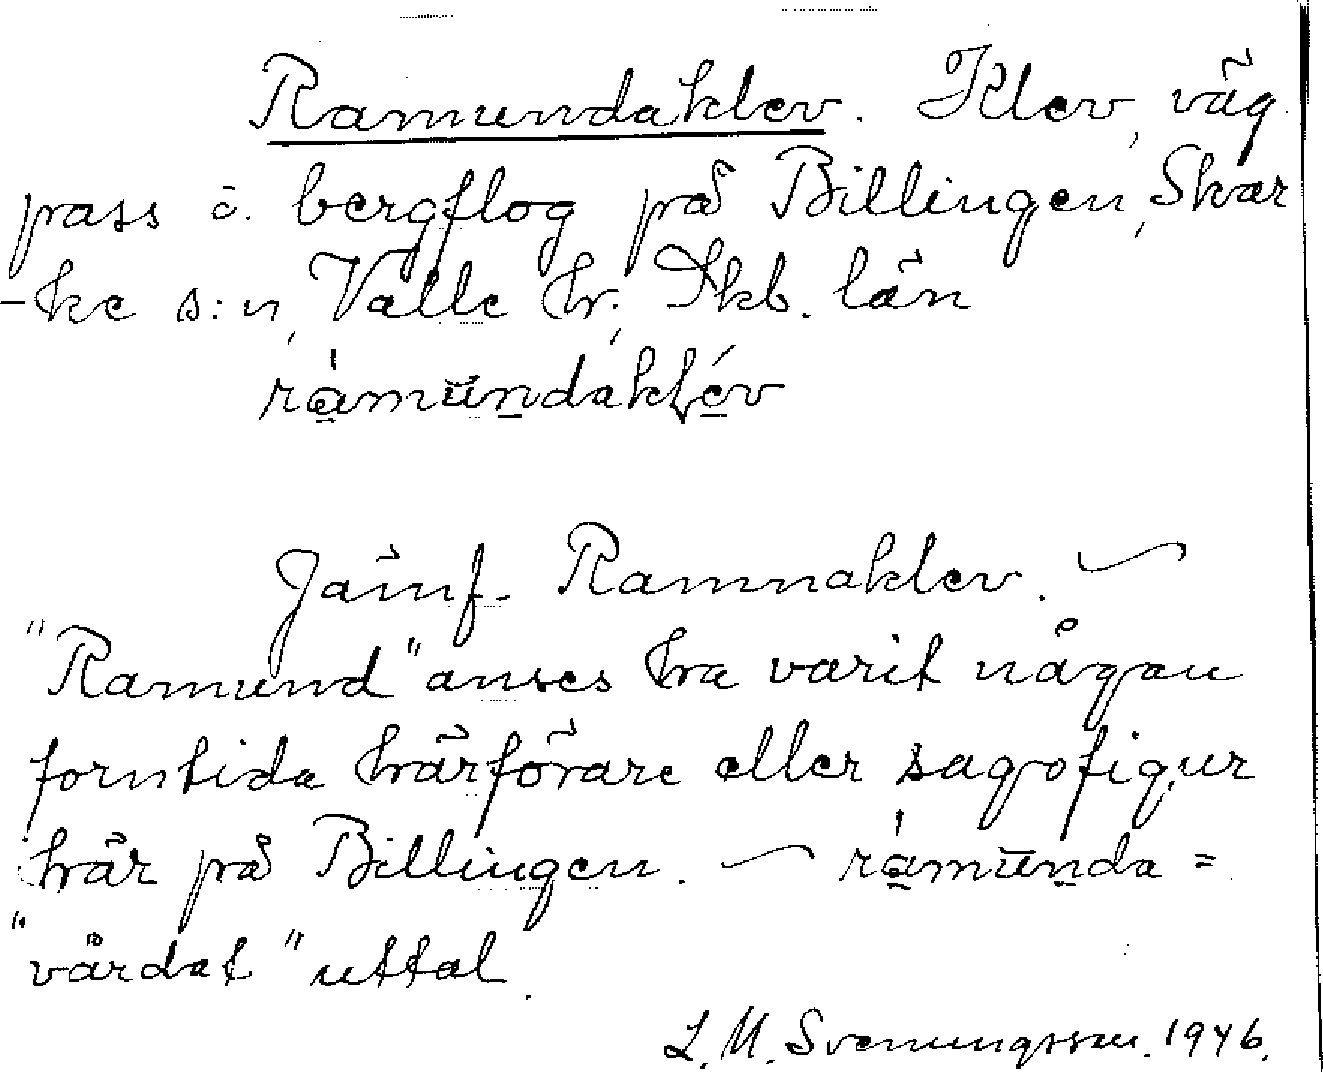 Ramundaklev. Klev, väg
pass o. bergflog på Billingen, Skar
-ke s:n, Valle hr; Skb. län
ràmundaklév
Jämf. Ramnaklev. —
"Ramund" anses ha varit någon
forntida härförare eller sagofigur
här på Billingen. — ràmunda =
"vårdat" uttal.
L. M. Svenungsson. 1946.